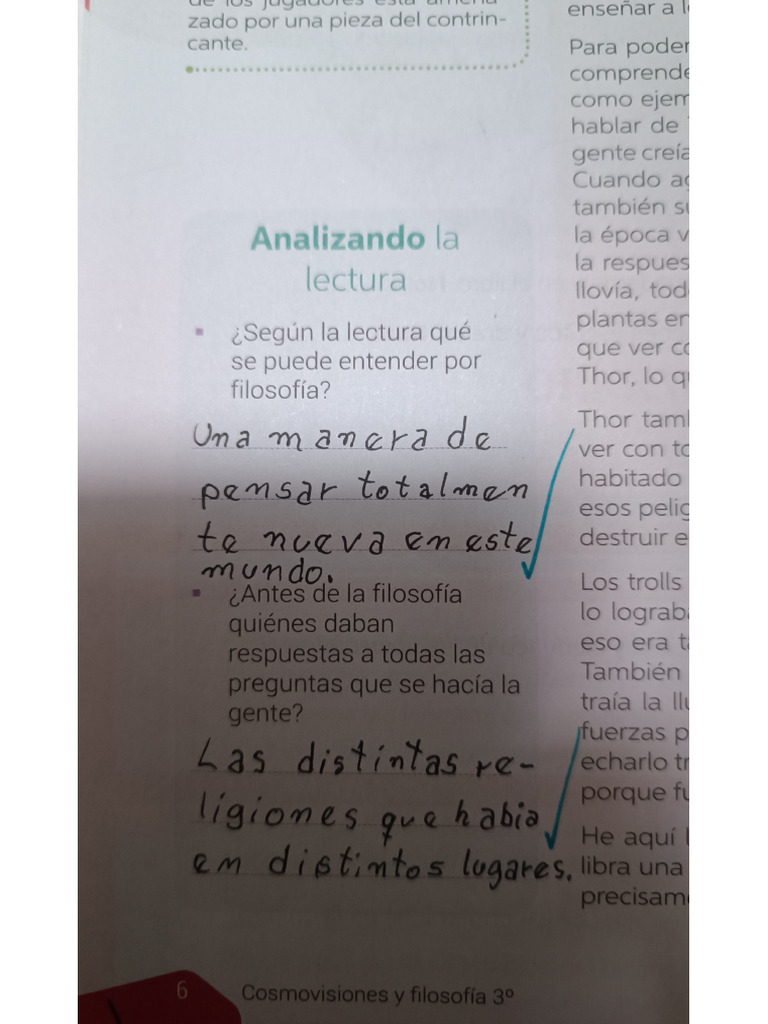 de los jugadores está amena-
zado por una pieza del contrin-
cante.
Analizando la
lectura
¿Según la lectura qué
se puede entender por
filosofía?
Una manera de
pensar totalmen
te nueva en este
mundo.
¿Antes de la filosofía
quiénes daban
respuestas a todas las
preguntas que se hacía la
gente?
Las distintas re-
ligiones que habia
en distintos lugares.
6 Cosmovisiones y filosofía 3º
enseñar a
Para poder
como
hablar de
gente creía
Cuando
también
la época
la
llovía,
plantas
que ver
Thor, lo
Thor
ver con
habitado
esos
destruir
Los trolls
lo
eso era
También
traía la
fuerzas
echarlo
porque
He aquí
libra una